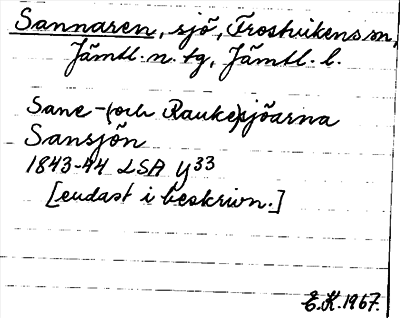 Sannaren, sjö, Frostvikens sn,
Jämtl. n. tg, Jämtl. l.
Sane-(och Rauke)sjöarna
Sansjön
1843-44 LSA y33
[endast i beskrivn.]
E.K. 1967.